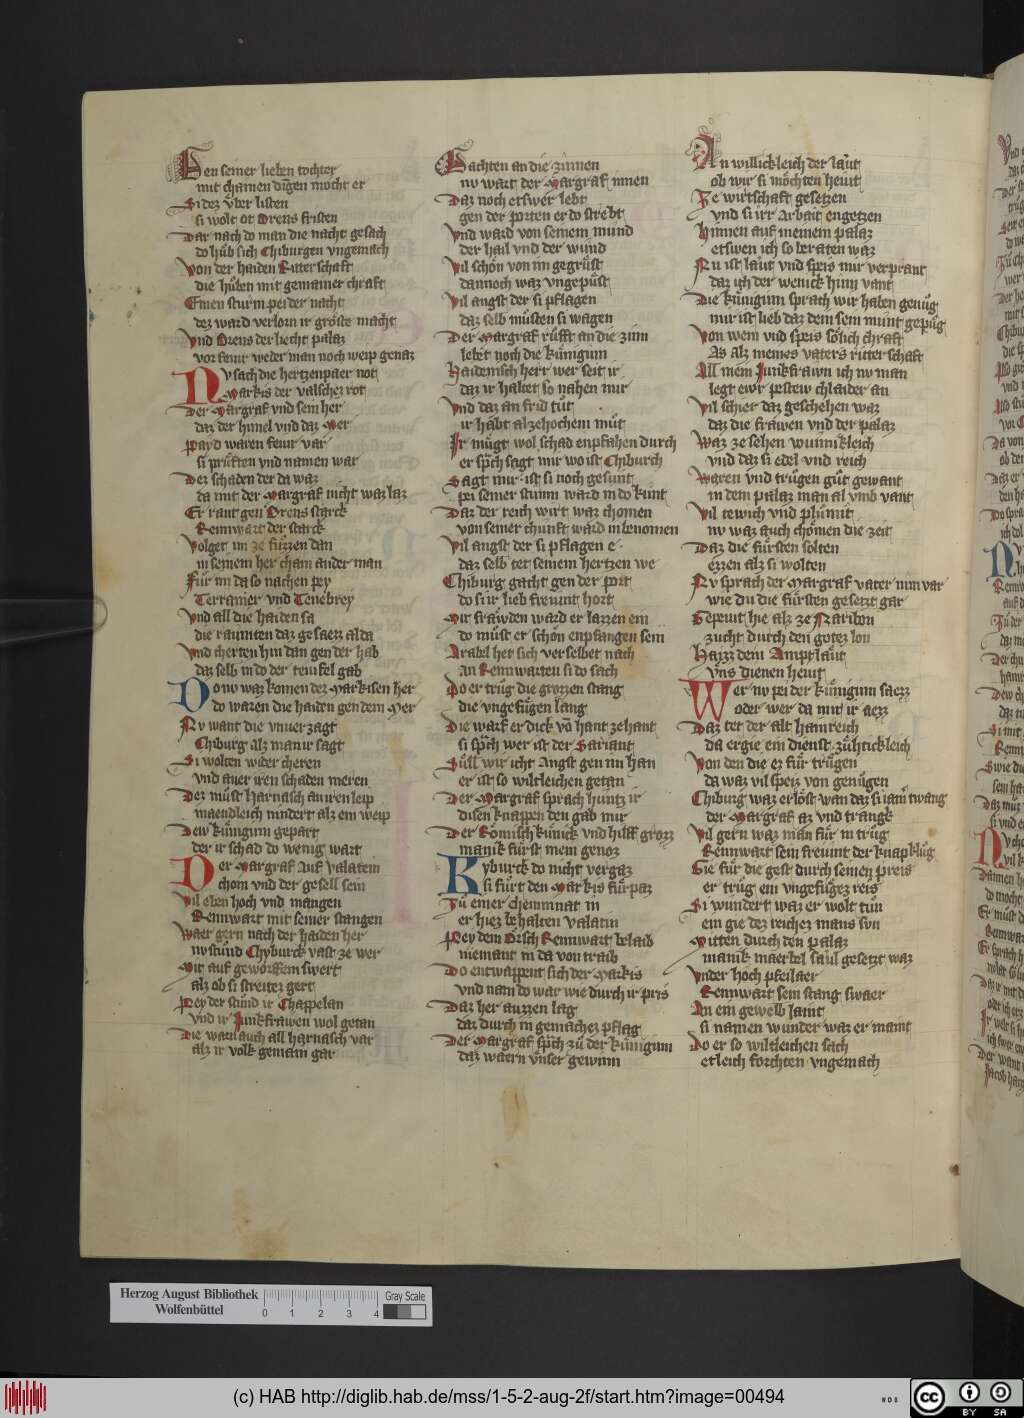 Den seiner lieben tochter
mit chainen dingen mocht er
Si dez vͤber listen
si wolt ot Orens fristen
Dar nach do man die nacht gesach
do hůb sich Chiburgen vngemach
Von der haiden Ritterschaft
die hůben mit gemainer chraft
Einen sturm pei der nacht
dez ward verlorn ir gröste macht
Vnd Orens der liecht palaz
vor feur weder man noch weip genaz
NV sach die hertzenpaer not
Markis der valschez rot
Der Margraf vnd sein her
daz der himel vnd daz Mer
Payd waren feur var
si pruften vnd namen war
Dez schaden der da waz
da mit der Margraf nicht waz laz
Er rant gen Orens starck
Rennwart der starck
Volget im ze fůzzen dan
in seinem her cham ander man
Fur im da so nachen pey
Terramer vnd Tenebrey
Vnd all die haiden sa
die raumten daz gesaezz alda
Vnd cherten hin dan gen der hab
daz selb in do der teufel gab
Do nv waz komen dez Markisen her
do wazen die haiden gen dem Mer
Nv want die vnuerzagt
Chiburg alz man ir sagt
Si wolten wider cheren
vnd auer iren schaden meren
Dez můst harnasch an iren leip
maendleich nindert alz ein weip
Dew kůnginn gepart
der ir schad do wenig wart
Der Margraf Auf Valatein
chom vnd der gesell sein
Vil eben hoch vnd mangen
Rennwart mit seiner stangen
Waer gern nach der haiden her
nv stund Chyburck vast ze wer
Mit auf geworffem swert
alz ob si streitez gert
Pey der stund ir Chappelan
vnd ir Junkfrawen wol getan
Die warn auch all harnasch var
alz ir volk gemain gar
Sachten an die zinnen
nv wart der Margraf innen
Daz noch etswer lebt
gen der porten er do strebt
Vnd ward von seinem mund
der hail vnd der wund
Vil schon von im gegrůst
dannoch waz vngepůst
Vil angst der si pflagen
daz selb můsten si wagen
Der Margraf růfft an die zinn
lebt noch die kůniginn
Haidenisch herr wer seit ir
daz ir haltet so nahen mir
Vnd daz an frid tůt
ir habt alzehochem můt
Ir mugt wol schad enpfahen durch
er spch sagt mir wo ist Chiburch
Sagt mir ist si noch gesunt
pei seiner stimm ward in do kunt
Daz der reich wirt waz chomen
von seiner chunft ward in benomen
Vil angst der si pflagen e
daz selb tet seinem hertzen we
Chiburg gacht gen der port
do si ir lieb freunt hort
Mit frawden ward er lazzen ein
do můst er schon enpfangen sein
Arabel her sich verselbet nach
An Rennwarten si do sach
Do er trug die grozzen stang
die vngefugen lang
Die warf er dick võ hant zehant
si spch wer ist der Sariant
Sull wir icht Angst gen im han
er ist so wiltleichen getan
Der Margraf sprach huntz ir
disen knappen den gab mir
Der Romisch kunick vnd hilff grozz
manik furst mein genoz
Kyburck do nicht vergaz
si furt den Markis furpaz
Zů einer chemmnat in
er hiez behalten valatin
Pey dem Orsch Rennwart belaib
niemant in da von traib
Do entwappent sich der Markis
vnd nam do war wie durch ir pris
Daz her auzzen lag
daz durch in gemachez pflag
Der Margraf spch zů der kunginn
daz waern vnser gewinn
An willickleich der laut
ob wir si mochten heint
Ze wirtschaft gesetzen
vnd si irr Arbait engetzen
Hinnen auf meinem palaz
etswen ich so beraten waz
Nu ist laut vnd speis mir verprant
daz ich der wenick hinn vant
Die kuniginn sprach wir haben genůg
mir ist lieb daz dem sein munt gepůg
Von wein vnd speis sölich chraft
As alz meines vaters ritterschaft
All mein Junkfrawn ich nv man
legt ewr pestew chlaider an
Vil schier daz geschehen waz
daz die frawen vnd der palaz
Waz ze sehen wunnikleich
vnd daz si edel vnd reich
Waren vnd trůgen gůt gewant
in dem palaz man al vmb vant
Vil tewich vnd plumit
nv waz auch chomen die zeit
Daz die fursten solten
ezzen alz si wolten
Nv sprach der Margraf vater min var
wie du die fursten gesetzt gar
Gepeut hie alz ze Naribon
zucht durch den gotez lon
Haizz dein Amptlaut
vns dienen heint
Wer nv pei der kuniginn saezz
oder wer da mit ir aezz
Daz tet der alt hainreich
da ergie ein dienst zuhtickleich
Von den die ez fur trugen
da waz vil speiz von genugen
Chiburg waz erlost wan daz si iam twang
der Margraf az vnd trankg
Vil gern waz man fur in trug
Rennwart sein freunt der knap klůg
Gie fur die gest durch seinen preis
er trug ein vngefugez reis
Si wundert waz er wolt tun
ein gie dez reichez mans svn
Mitten durch den palaz
manik maerbel saul gesetzt waz
Vnder hoch pfeilaer
Rennwart sein stang swaer
An ein gewelb laint
si namen wunder waz er maint
Do er so wiltleichen sach
etleich forchten vngemach
Herzog August Bibliothek
Wolfenbüttel
0 1 2 3 4
Gray Scale
(c) HAB http://diglib.hab.de/mss/1-5-2-aug-2f/start.htm?image=00494
WDB
cc BY SA